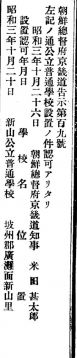 朝鮮總督府京畿道告示第百九號
左記ノ通公立普通學校設置ノ件認可アリタリ
昭和三年十月二十六日
朝鮮總督府京畿道知事　米田甚太郎
設置認可年月日　學校名　位置
昭和三年十月二十日　新山公立普通學校　坡州郡廣灘面新山里